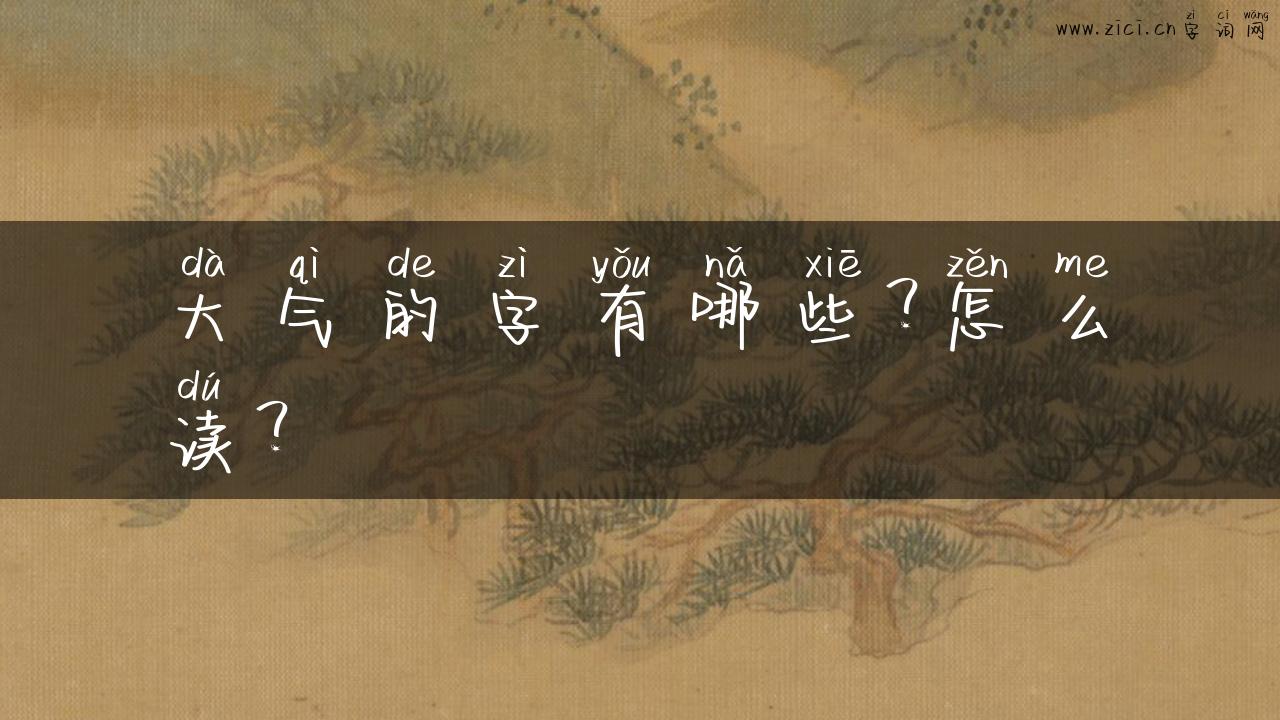 www.zici.cn zì cí wǎng
字词网
dà qì de zì yǒu nǎ xiē zěn me
大气的字有哪些？怎么
dú
读？